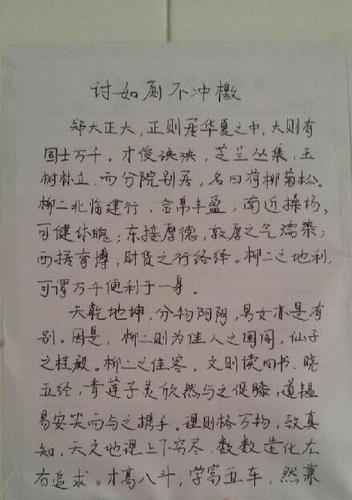 讨如厕不冲檄
郑大正大，正则居华夏之中，大则有
国士万千。才俊泱泱，芝兰丛集，玉
树林立，而分院别居，名曰荷柳菊松。
柳二北临建行，金帛丰盈，南近操场，
可健体魄；东接厚德，敦厚之气濡染；
西接育博，财货之行络绎。柳二之地利，
可谓万千便利于一身。
天乾地坤，分物阴阳，男女亦是有
别。因是，柳二则为佳人之闺阁，仙子
之桂殿。柳二之佳客，文则读四书，晓
五经，青莲子美欣然与之促膝，道韫
易安笑而与之携手。理则格万物，致真
知，天文地理上下穷尽，数数造化左
右追求。才高八斗，学富五车，然兼